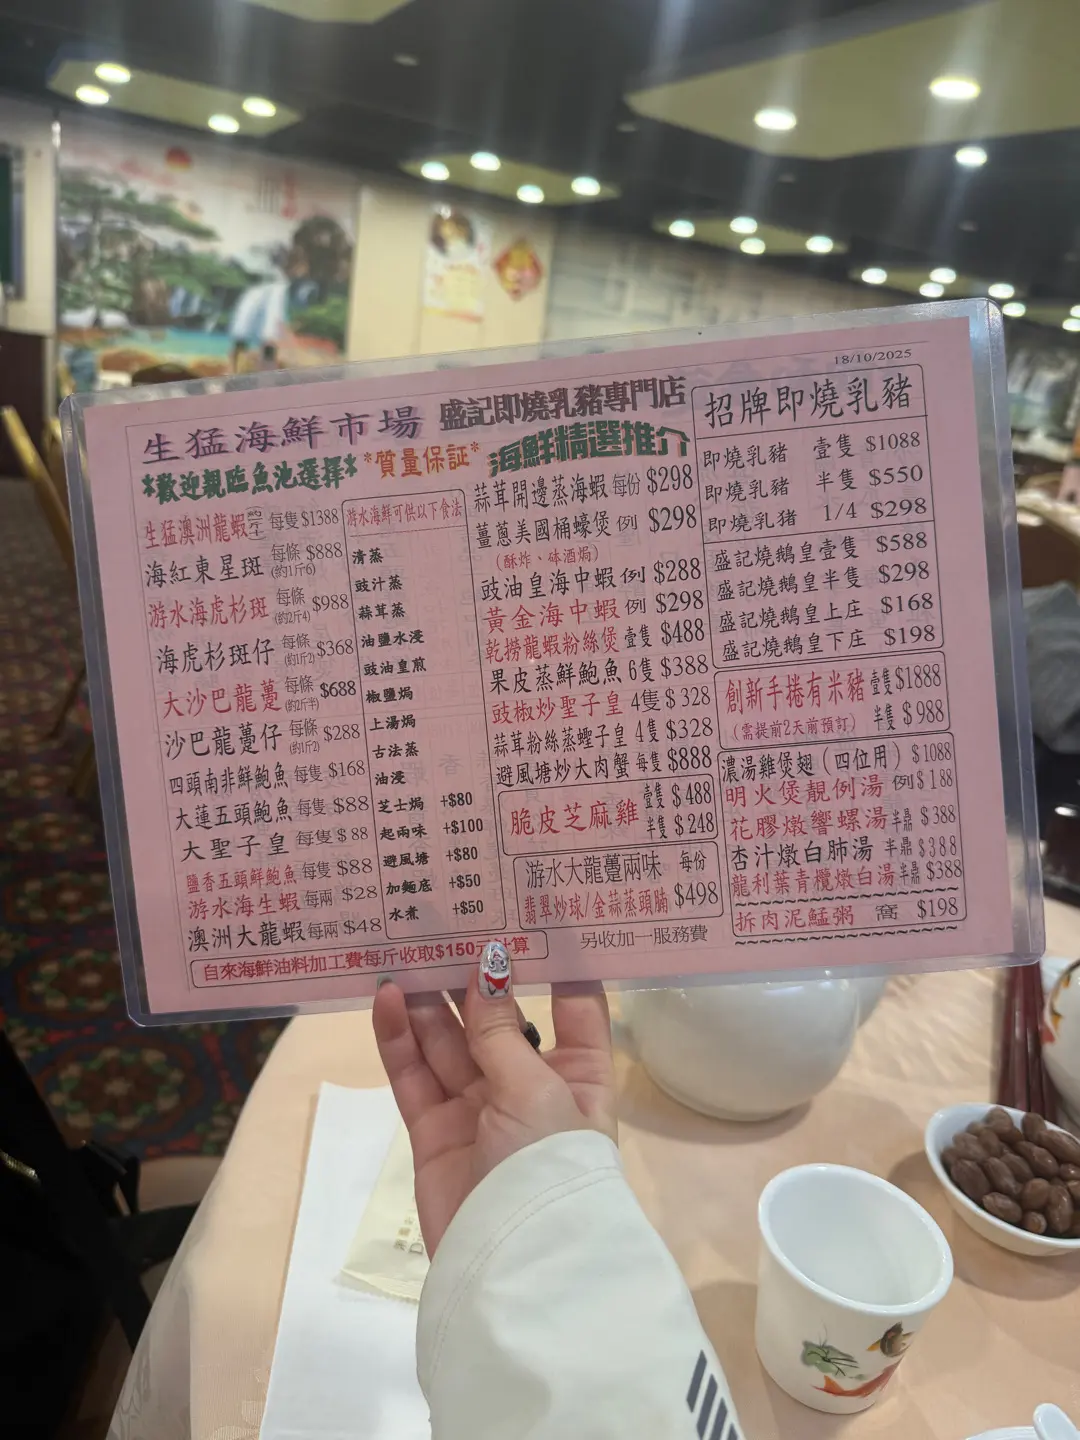 18/10/2025
生猛海鮮市場
*歡迎親臨魚池選擇*
*質量保証*
生猛澳洲龍蝦 約1斤 每隻 $1388
海紅東星斑 每條(約1斤6) $888
游水海虎杉斑 每條(約2斤4) $988
海虎杉斑仔 每條(約1斤2) $368
大沙巴龍躉 每條(約2斤半) $688
沙巴龍躉仔 每條(約1斤2) $288
四頭南非鮮鮑魚 每隻 $168
大蓮五頭鮑魚 每隻 $88
大聖子皇 每隻 $88
鹽香五頭鮮鮑魚 每隻 $88
游水海生蝦 每兩 $28
澳洲大龍蝦 每兩 $48
游水海鮮可供以下食法
清蒸
豉汁蒸
蒜茸蒸
油鹽水浸
豉油皇煎
椒鹽焗
上湯焗
古法蒸
油浸
芝士焗 +$80
起兩味 +$100
避風塘 +$80
加麵底 +$50
水煮 +$50
自來海鮮油料加工費每斤收取$150元計算
盛記即燒乳豬專門店
海鮮精選推介
蒜茸開邊蒸海蝦 每份 $298
薑蔥美國桶蠔煲 例 $298
(酥炸、砵酒焗)
豉油皇海中蝦 例 $288
黃金海中蝦 例 $298
乾撈龍蝦粉絲煲 壹隻 $488
果皮蒸鮮鮑魚 6隻 $388
豉椒炒聖子皇 4隻 $328
蒜茸粉絲蒸蟶子皇 4隻 $328
避風塘炒大肉蟹 每隻 $888
脆皮芝麻雞 壹隻 $488
半隻 $248
游水大龍躉兩味 每份
翡翠炒球/金蒜蒸頭腩 $498
另收加一服務費
招牌即燒乳豬
即燒乳豬 壹隻 $1088
即燒乳豬 半隻 $550
即燒乳豬 1/4 $298
盛記燒鵝皇壹隻 $588
盛記燒鵝皇半隻 $298
盛記燒鵝皇上庄 $168
盛記燒鵝皇下庄 $198
創新手捲有米豬 壹隻 $1888
(需提前2天前預訂) 半隻 $988
濃湯雞煲翅(四位用) $1088
明火煲靚例湯 例 $188
花膠燉響螺湯 半鼎 $388
杏汁燉白肺湯 半鼎 $388
龍利葉青欖燉白湯 半鼎 $388
拆肉泥鯭粥 窩 $198